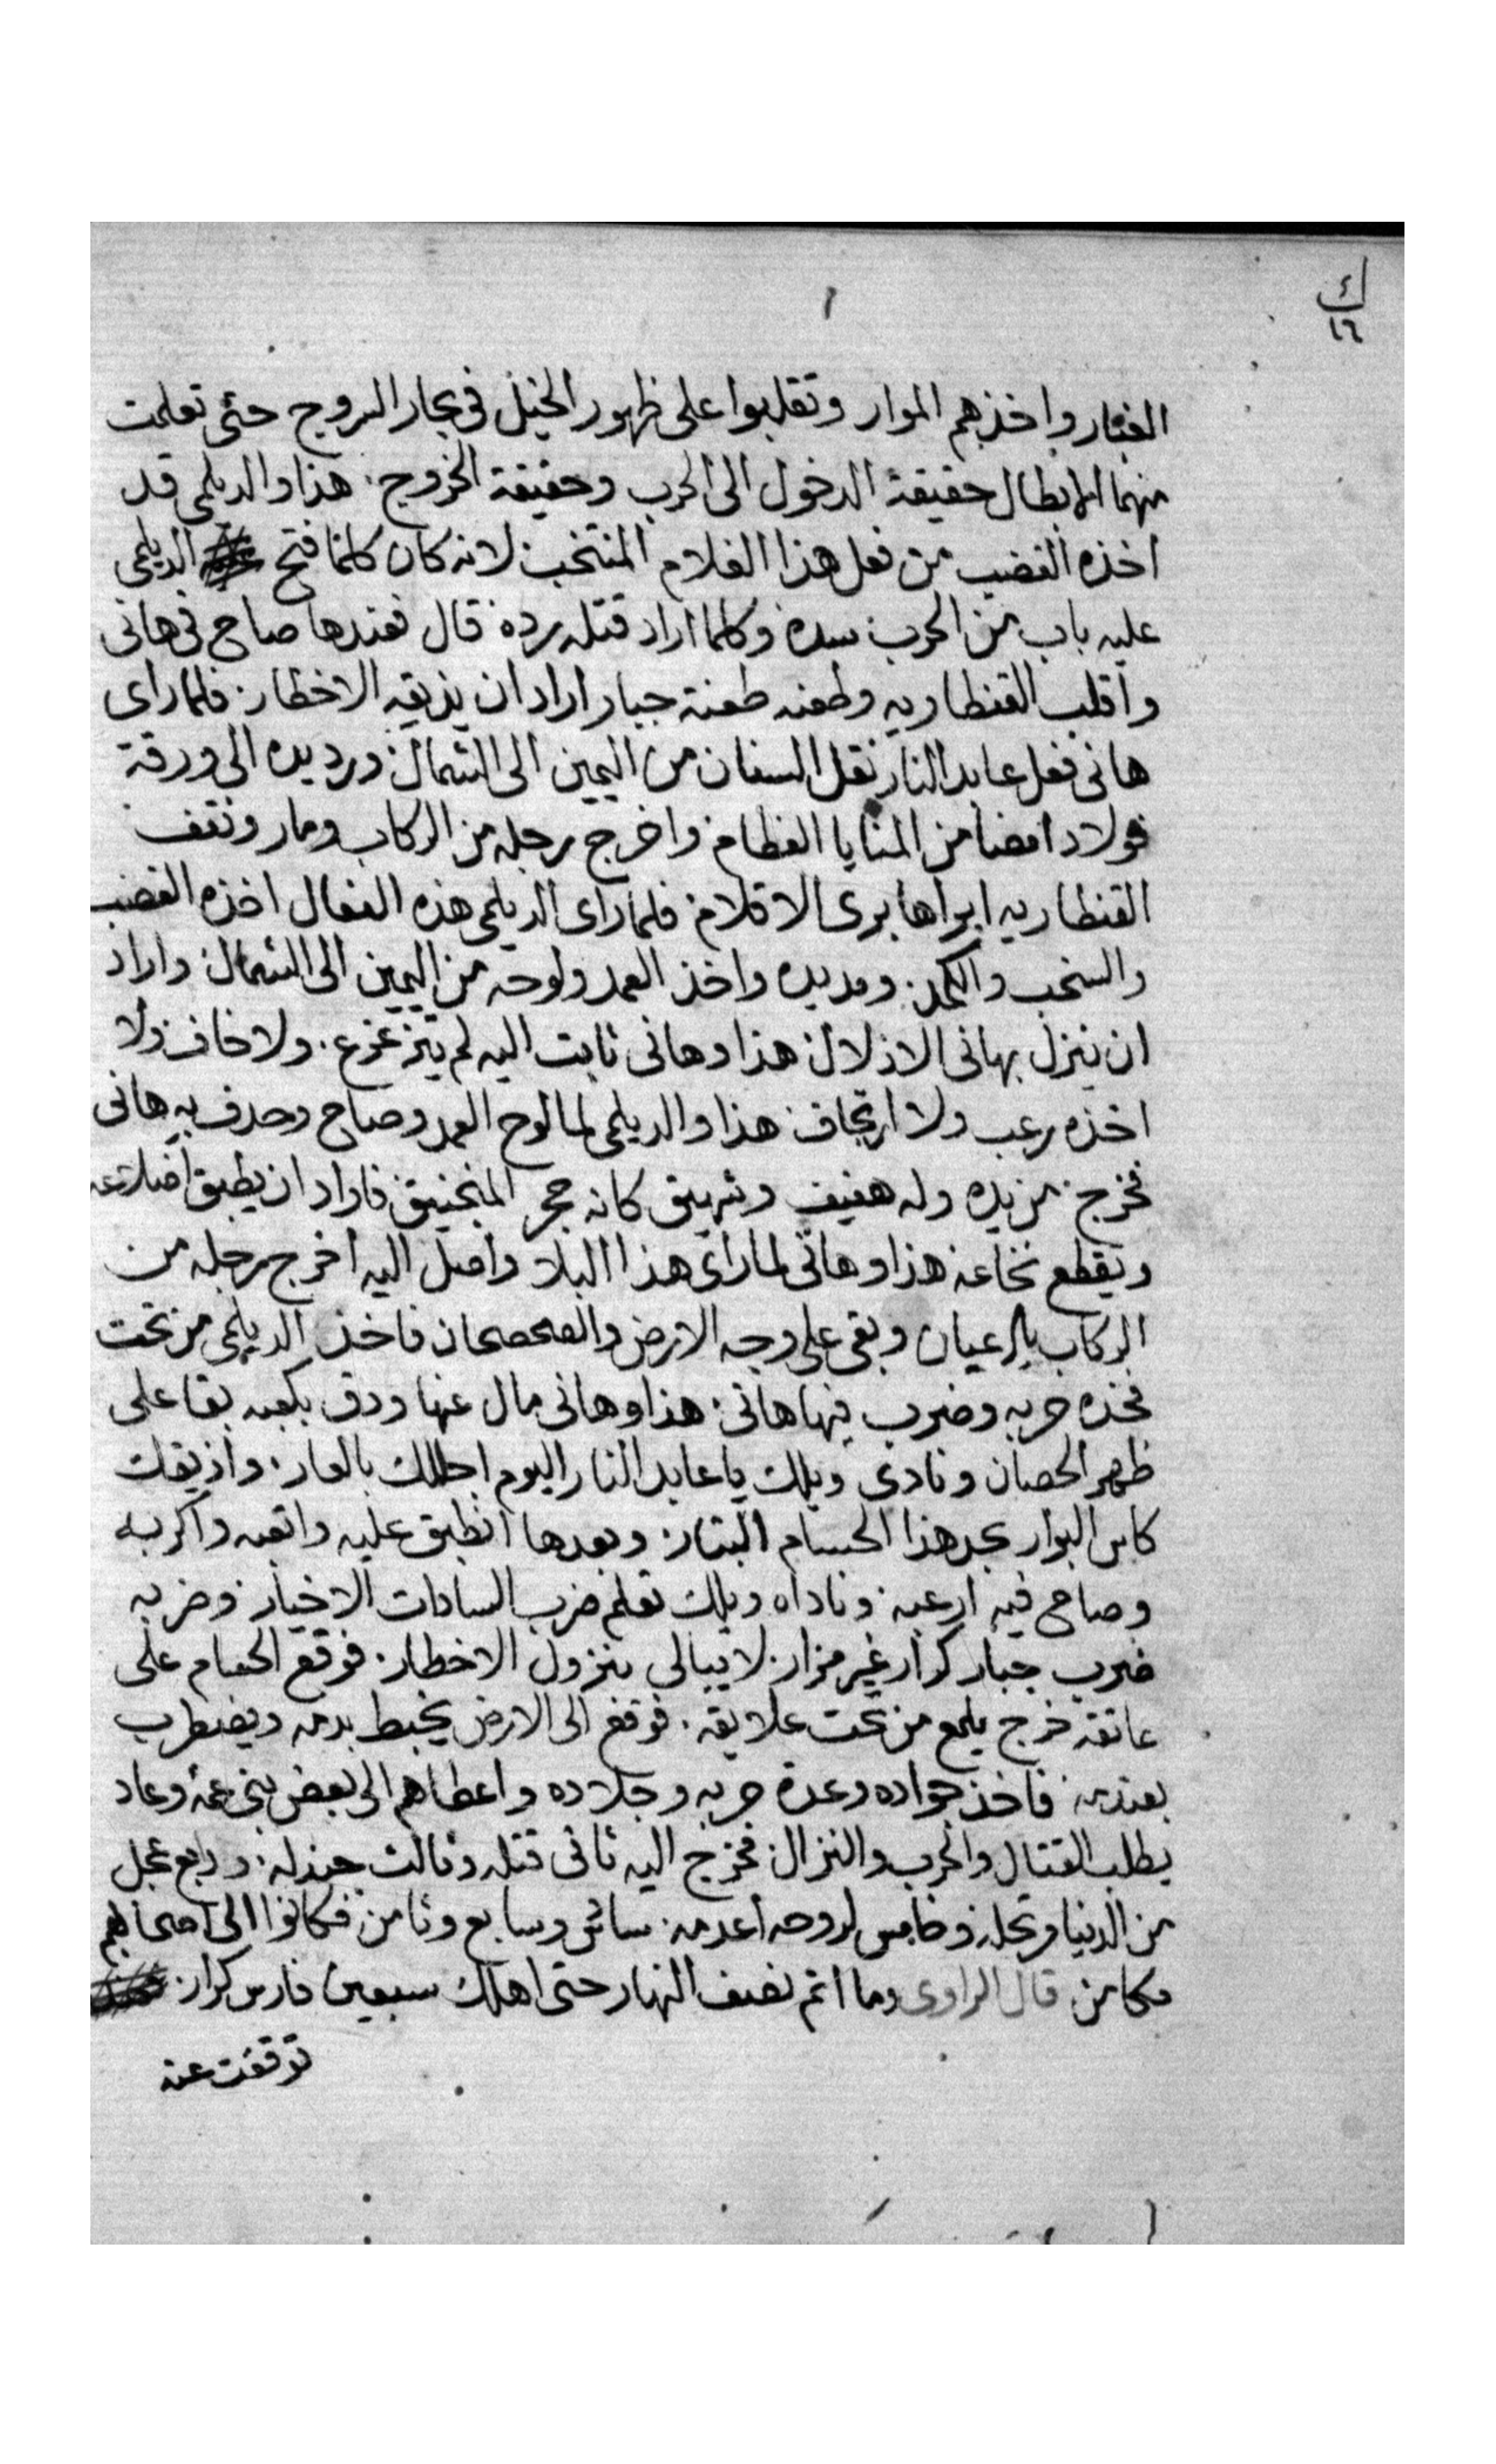 ك
١٦
١
الغبار واخذهم الموار وتقلبوا على ظهور الخيل فى بحار المروج حتى تعلمت
منهما الابطال حقيقة الدخول الى الحرب وحقيقة الخروج. هذا والديلمى قد
اخذه الغضب من فعل هذا الغلام المنتخب لانه كان كلما فتح الديلمى
عليه باب من الحرب سده وكلما اراد قتله رده قال فعندها صاح فى هانى
واقلب القنطاريه وطعنه طعنة جبار اراد ان يذيقه الاخطار فلما راى
هانى فعل عابد النار نقل السنان من اليمين الى الشمال ورد يده الى ورقة
فولاد امضا من المنايا العظام واخرج رجله من الركاب ومار ونقف
القنطاريه ابراها برى الاقلام فلما راى الديلمى هذه الفعال اخذه الغضب
والسخب والكمد. ومد يده واخذ العمد ولوحه من اليمين الى الشمال واراد
ان ينزل بهانى الاذلال هذا وهانى ثابت اليه لم يتزعزع. ولا خاف ولا
اخذه رعب ولا ارتجاف هذا والديلمى لما لوح العمد وصاح وحدف به هانى
فخرج من يده وله هفيف وشهيق كانه حجر المنجنيق فاراد ان يطبق اضلاعه
ويقطع نخاعه هذا وهانى لما راى هذا البلا واصل اليه اخرج رجله من
الركاب بالرعيان وبقى على وجه الارض والصحصحان فاخذ الديلمى من تحت
فخده حربه وضرب فيها هانى. هذا وهانى مال عنها ودق بكعبه بقا على
ظهر الحصان ونادى ويلك يا عابد النار اليوم اجللك بالعار. واذيقك
كاس البوار بحد هذا الحسام البتار وبعدها انطبق عليه واتعبه واكربه
وصاح فيه ارعبه وناداه ويلك تعلم ضرب السادات الاخيار وضربه
ضرب جبار كرار غير فرار. لا يبالى بنزول الاخطار. فوقع الحسام على
عاتقه خرج يلمع من تحت علايقه. فوقع الى الارض يخبط بدمه ويضطرب
بعندمه فاخذ جواده وعدة حربه وجلاده واعطاهم الى بعض بنى عمه وعاد
يطلب القتال والحرب والنزال فخرج اليه ثانى قتله وثالث جندله. ورابع عجل
من الدنيا مرتحله وخامس لروحه اعدمه. سادس وسابع وثامن فكانوا الى اصحابهم
مكامن قال الراوى وما اتم نصف النهار حتى اهلك سبعين فارس كرار.
توقفت عنه